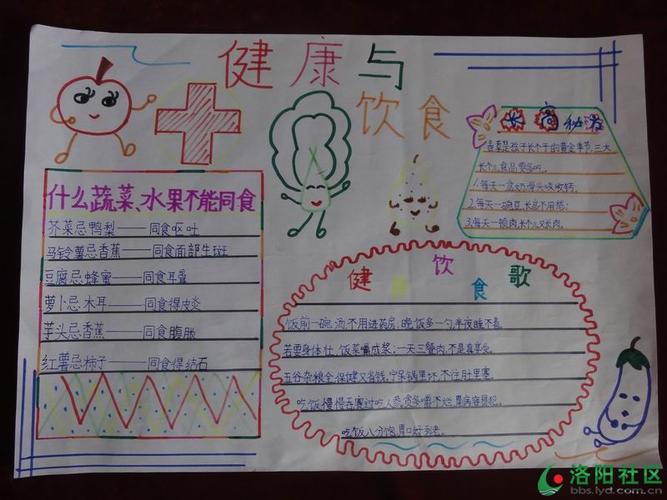 健康与
饮食
长高秘法
春季是孩子长个子的黄金季节,三大
长个儿食品要多吃。
1.每天一盒奶,骨头噢噢转。
2.每天一碗豆,长高不用愁。
3.每天一顿肉,长个儿又长肉。
什么蔬菜、水果不能同食
芥菜忌鸭梨——同食呕吐
马铃薯忌香蕉——同食面部生斑
豆腐忌蜂蜜——同食耳聋
萝卜忌木耳——同食得皮炎
芋头忌香蕉——同食腹胀
红薯忌柿子——同食得结石
健饮食歌
饭前一碗汤不用进药房;晚饭多一勺,半夜睡不着
若要身体壮,饭菜嚼成浆;一天三餐肉,不是真享受
五谷杂粮全,保健又省钱,宁呆锅里坏,不往肚里塞
吃饭慢慢吞赛过吃人参,贪多嚼不烂胃病容易犯
吃饭八分饱,胃口好到老
洛阳社区
bbs.lyd.com.cn